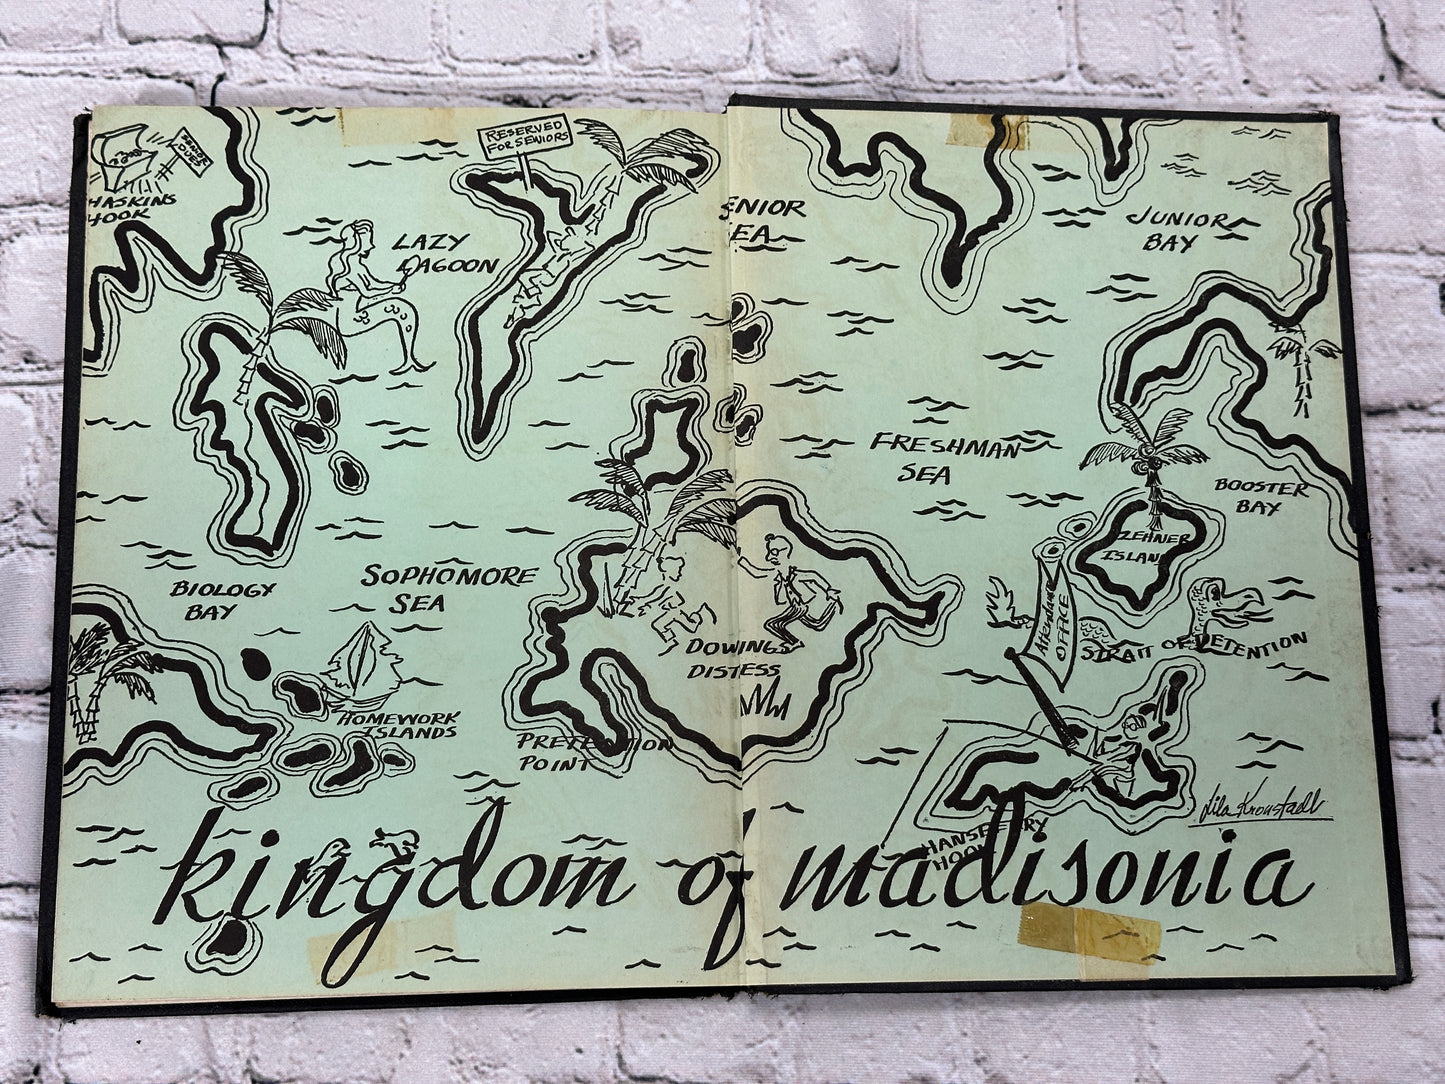 SENIOR
DUES
HASKINS
HOOK
RESERVED
FOR SENIORS
LAZY
LAGOON
ENIOR
EA
JUNIOR
BAY
FRESHMAN
SEA
BOOSTER
BAY
ZEHNER
ISLAND
BIOLOGY
BAY
SOPHOMORE
SEA
Attendance
OFFICE
STRAIT OF DETENTION
DOWINGS
DISTESS
HOMEWORK
ISLANDS
PRETENTION
POINT
Lila Kronstadt
HANSBERRY
HOOK
kingdom of madisonia